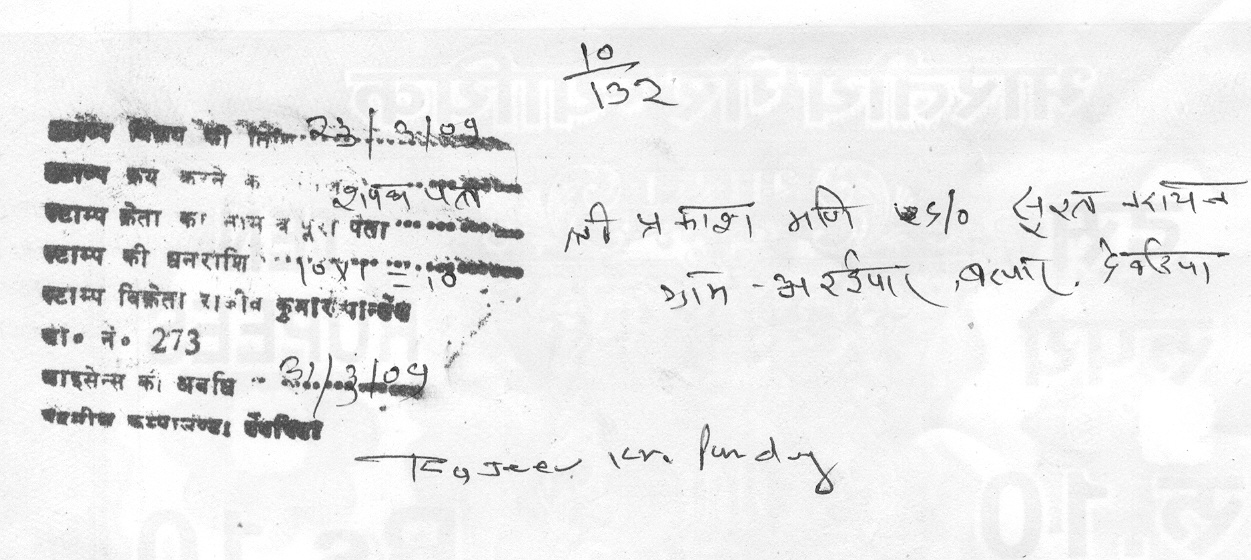 10
132
स्टाम्प विक्रय की तिथि 23/3/09
स्टाम्प क्रय करने का शपथ पत्र
स्टाम्प क्रेता का नाम व पूरा पता
श्री प्रकाश मणि S/0 सूरत नरायन
ग्राम -
स्टाम्प की धनराशि 10x1 = 10
स्टाम्प विक्रेता राजीव कुमार पान्डेय
ला० नं० 273
लाइसेन्स की अवधि 31/3/09
तहसील कम्पाउण्ड, देवरिया
Rajeev Kr. Pandey